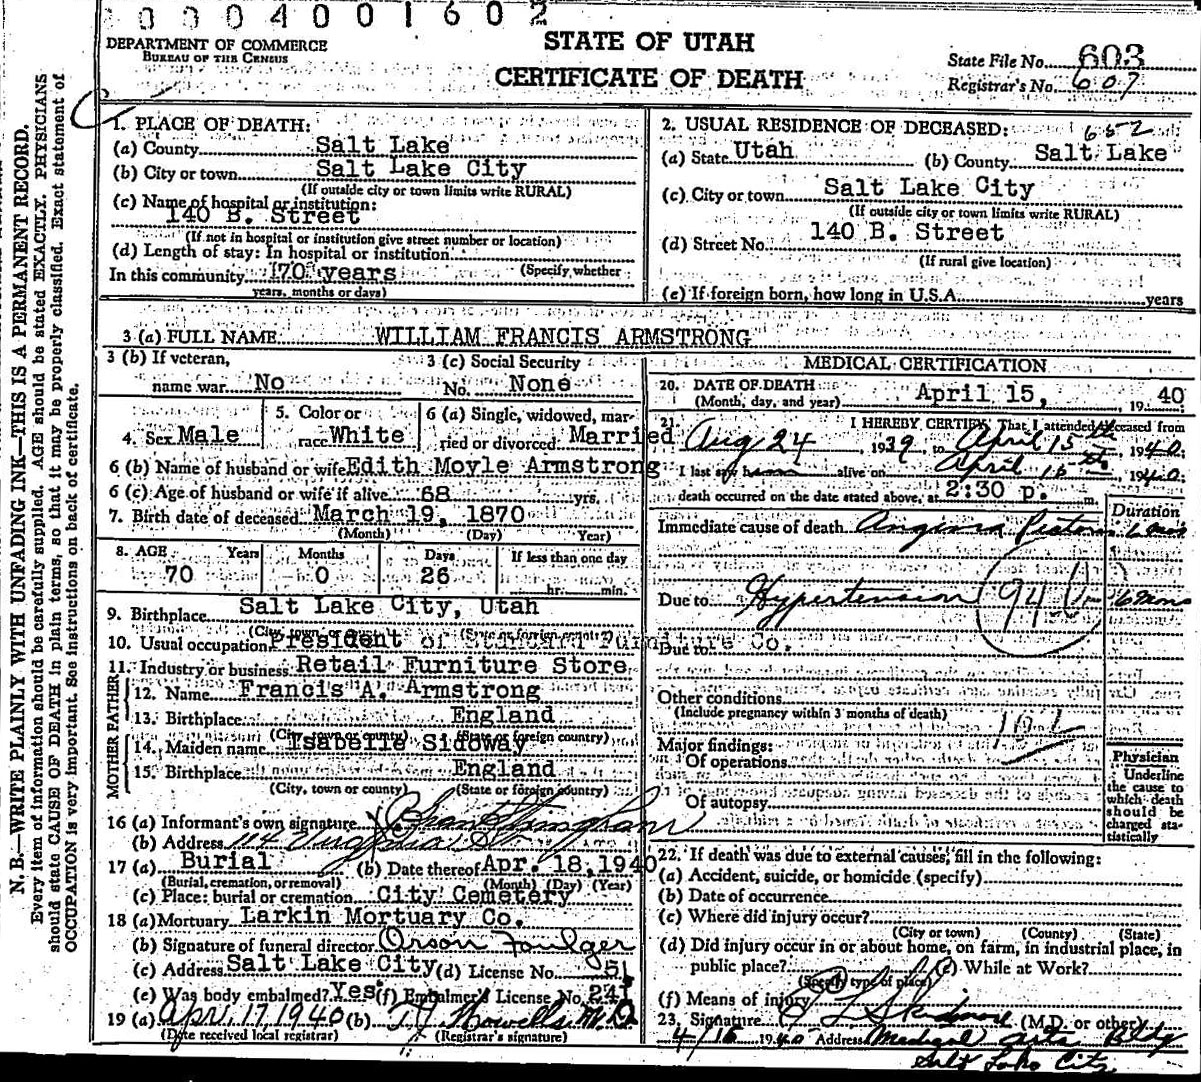 0004001602
DEPARTMENT OF COMMERCE
BUREAU OF THE CENSUS
STATE OF UTAH
CERTIFICATE OF DEATH
State File No. 603
Registrar's No. 607
N. B.—WRITE PLAINLY WITH UNFADING INK—THIS IS A PERMANENT RECORD.
Every item of information should be carefully supplied. AGE should be stated EXACTLY. PHYSICIANS
should state CAUSE OF DEATH in plain terms, so that it may be properly classified. Exact statement of
OCCUPATION is very important. See instructions on back of certificate.
1. PLACE OF DEATH:
(a) County Salt Lake
(b) City or town Salt Lake City
(If outside city or town limits write RURAL)
(c) Name of hospital or institution:
140 B. Street
(If not in hospital or institution give street number or location)
(d) Length of stay: In hospital or institution
In this community 70 years (Specify whether
years, months or days)
2. USUAL RESIDENCE OF DECEASED: 652
(a) State Utah (b) County Salt Lake
(c) City or town Salt Lake City
(If outside city or town limits write RURAL)
(d) Street No. 140 B. Street
(If rural give location)
(e) If foreign born, how long in U.S.A. years
3 (a) FULL NAME WILLIAM FRANCIS ARMSTRONG
3 (b) If veteran, name war No
3 (c) Social Security No. None
4. Sex Male
5. Color or race White
6 (a) Single, widowed, married or divorced. Married
6 (b) Name of husband or wife Edith Moyle Armstrong
6 (c) Age of husband or wife if alive 68 yrs.
7. Birth date of deceased March 19, 1870
(Month) (Day) Year)
8. AGE Years Months Days If less than one day
70 0 26 hr. min.
9. Birthplace Salt Lake City, Utah
(City, town or county) (State or foreign country)
10. Usual occupation President of Standard Furniture Co.
11. Industry or business Retail Furniture Store
FATHER
12. Name Francis A. Armstrong
13. Birthplace England
(City, town or county) (State or foreign country)
MOTHER
14. Maiden name Isabelle Sidoway
15. Birthplace England
(City, town or county) (State or foreign country)
16 (a) Informant's own signature
(b) Address 114 Virginia St
17 (a) Burial (b) Date thereof Apr. 18, 1940
(Burial, cremation, or removal) (Month) (Day) (Year)
(c) Place: burial or cremation City Cemetery
18 (a) Mortuary Larkin Mortuary Co.
(b) Signature of funeral director Orson Foulger
(c) Address Salt Lake City (d) License No. 51
(e) Was body embalmed? Yes (f) Embalmer's License No. 241
19 (a) Apr. 17, 1940 (b) T. J. Howells M.D.
(Date received local registrar) (Registrar's signature)
MEDICAL CERTIFICATION
20. DATE OF DEATH April 15, 1940
(Month, day, and year)
21. I HEREBY CERTIFY, That I attended deceased from
Aug 24 1939, to April 15th 1940;
I last saw him alive on April 15th, 1940;
death occurred on the date stated above, at 2:30 p. m.
Duration
Immediate cause of death Angina Pectoris 6 mos
Due to Hypertension 94 6 mos
Due to
Other conditions
(Include pregnancy within 3 months of death)
Major findings:
Of operations
Of autopsy
Physician
Underline
the cause to
which death
should be
charged sta-
tistically
22. If death was due to external causes, fill in the following:
(a) Accident, suicide, or homicide (specify)
(b) Date of occurrence
(c) Where did injury occur?
(City or town) (County) (State)
(d) Did injury occur in or about home, on farm, in industrial place, in
public place? (e) While at Work?
(Specify type of place)
(f) Means of injury
23. Signature L Skidmore (M.D. or other)
4/16 1940 Address Medical Arts Bldg
Salt Lake City